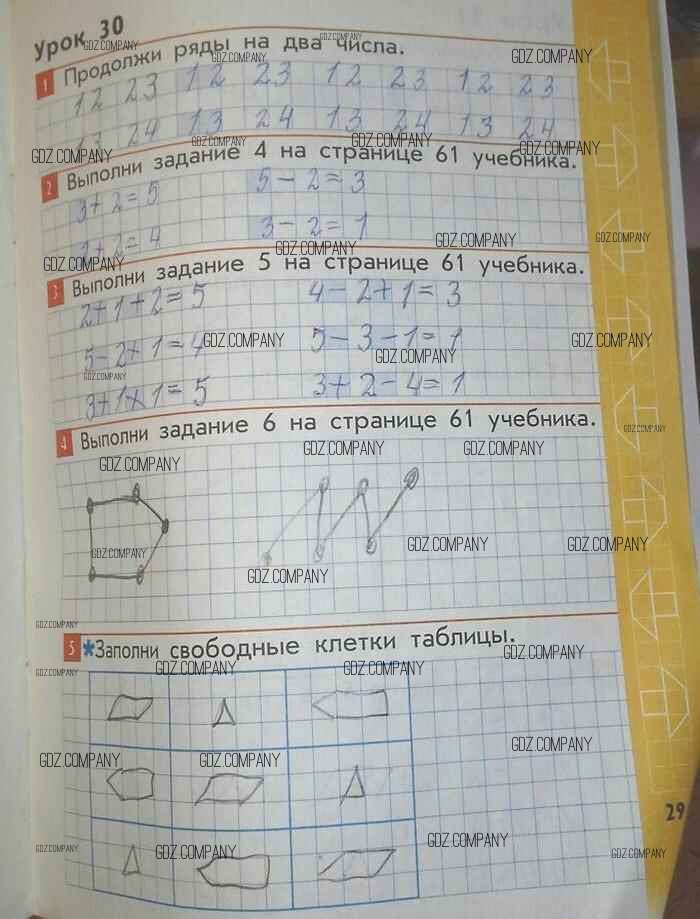 Урок 30
1 Продолжи ряды на два числа.
12 23 12 23 12 23 12 23
13 24 13 24 13 24 13 24
2 Выполни задание 4 на странице 61 учебника.
3+2=5 5-2=3
+2=4 3-2=1
3 Выполни задание 5 на странице 61 учебника.
2+1+2=5 4-2+1=3
5-2+1=4 5-3-1=1
3+1+1=5 3+2-4=1
4 Выполни задание 6 на странице 61 учебника.
5 *Заполни свободные клетки таблицы.
29
GDZ.COMPANY